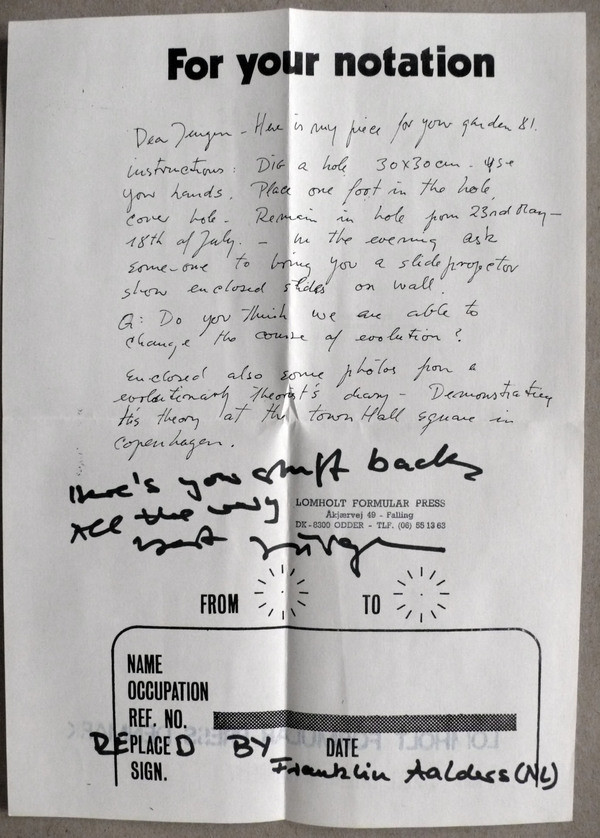 For your notation
Dear Jürgen - Here is my piece for your garden 81.
instructions: Dig a hole 30x30cm - Use
your hands. Place one foot in the hole,
cover hole. Remain in hole from 23rd May -
18th of July. - in the evening ask
someone to bring you a slideprojector
show enclosed slides on wall.
Q: Do you think we are able to
change the course of evolution?
Enclosed also some photos from a
evolutionary theorist's diary - Demonstrating
his theory at the town Hall square in
Copenhagen.
Here's your stuff back,
All the very
best Jürgen
LOMHOLT FORMULAR PRESS
Åkjærvej 49 - Falling
DK-8300 ODDER - TLF. (06) 55 13 63
FROM TO
NAME
OCCUPATION
REF. NO.
REPLACED BY DATE
SIGN. Franklin Aalders (NL)